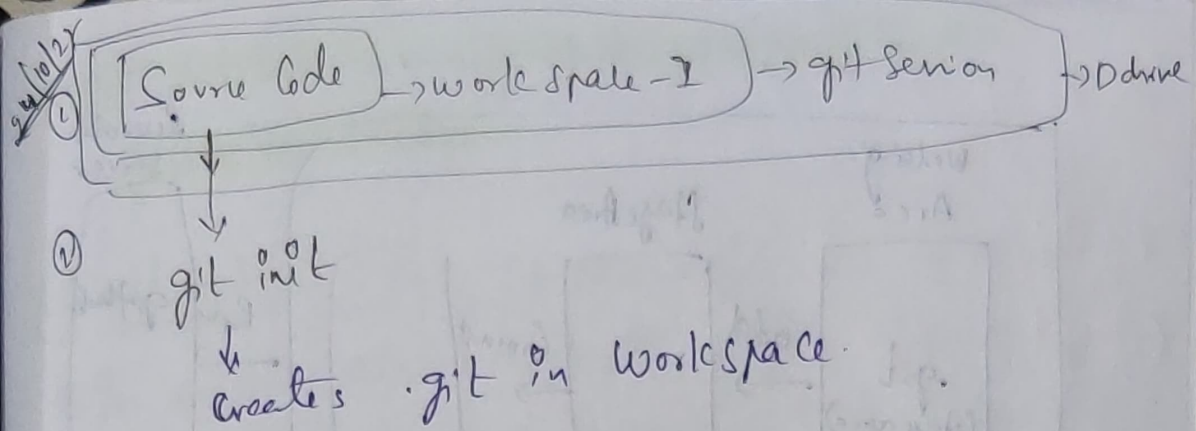 24/10/2
① Source Code → workspace-1 → git Session → D drive
② git init
↓
creates .git in workspace.